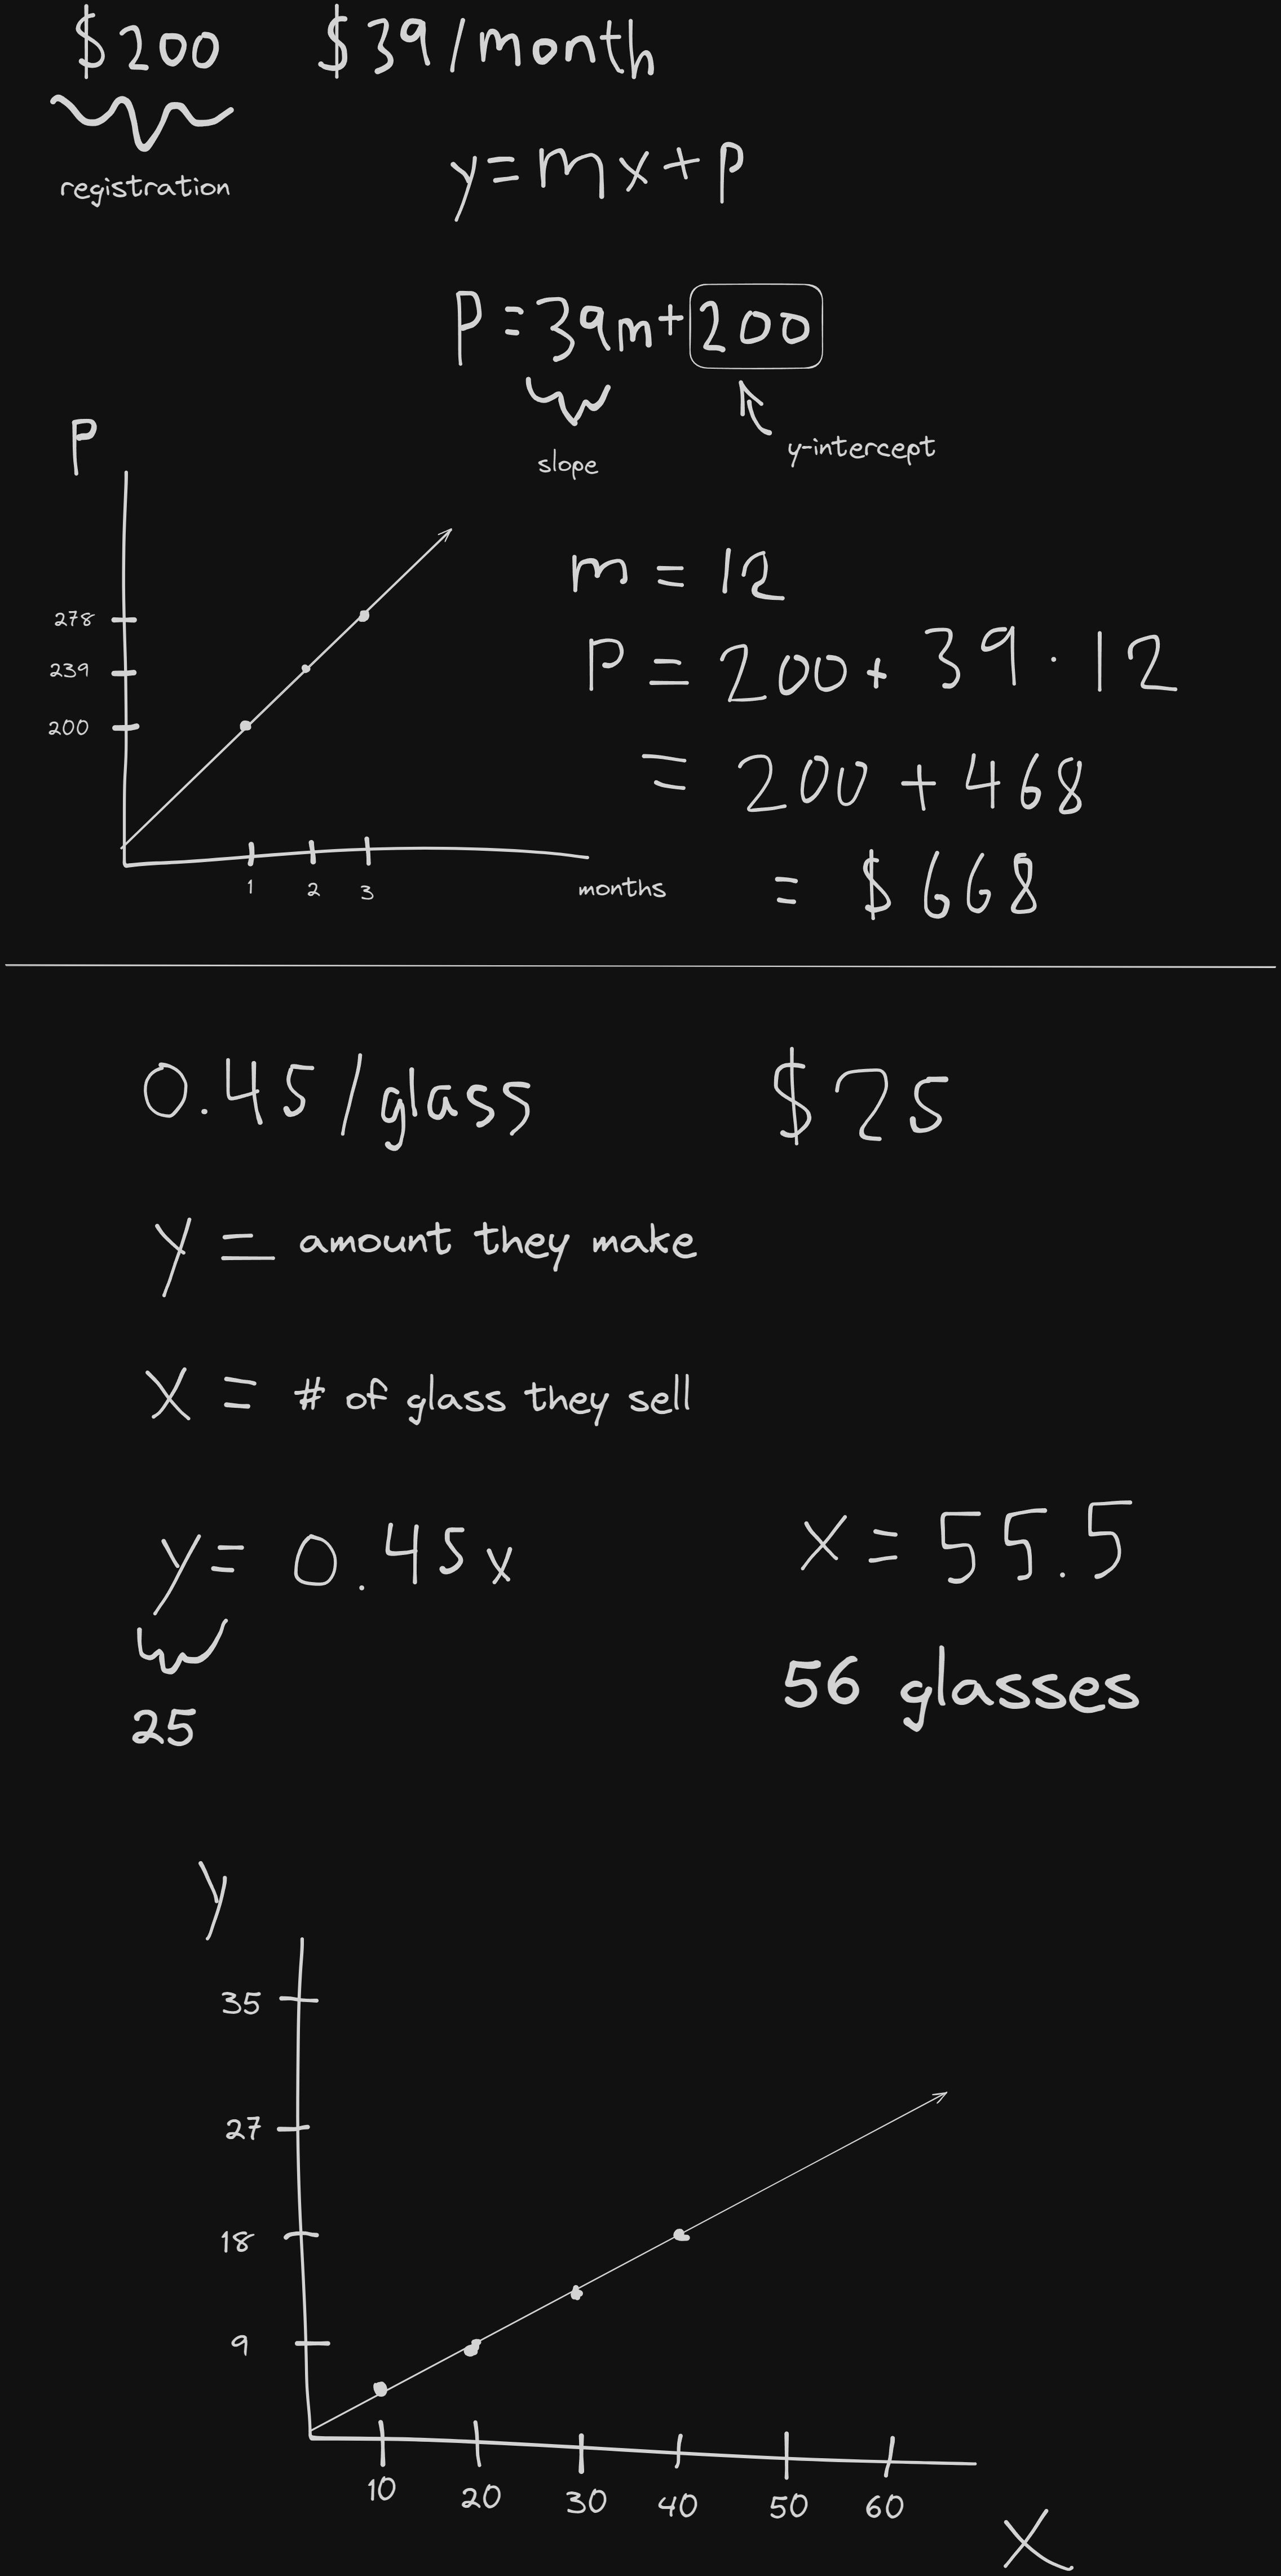 $200 $39/month
registration
y=mx+p
P=39m+200
slope
y-intercept
P
278
239
200
1 2 3
months
m = 12
P = 200 + 39 · 12
= 200 + 468
= $668
0.45/glass $25
y = amount they make
x = # of glass they sell
y= 0.45x
25
x = 55.5
56 glasses
y
35
27
18
9
10 20 30 40 50 60
X